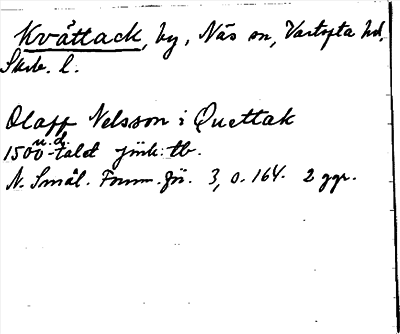 Kvättack, by, Näs sn, Vartofta hd,
Skrb. l.
Olaff Nelsson i Quettak
u. d.
1500-talet jönk: tb.
N. Smål. Fornm. för. 3, s. 164. 2 ggr.